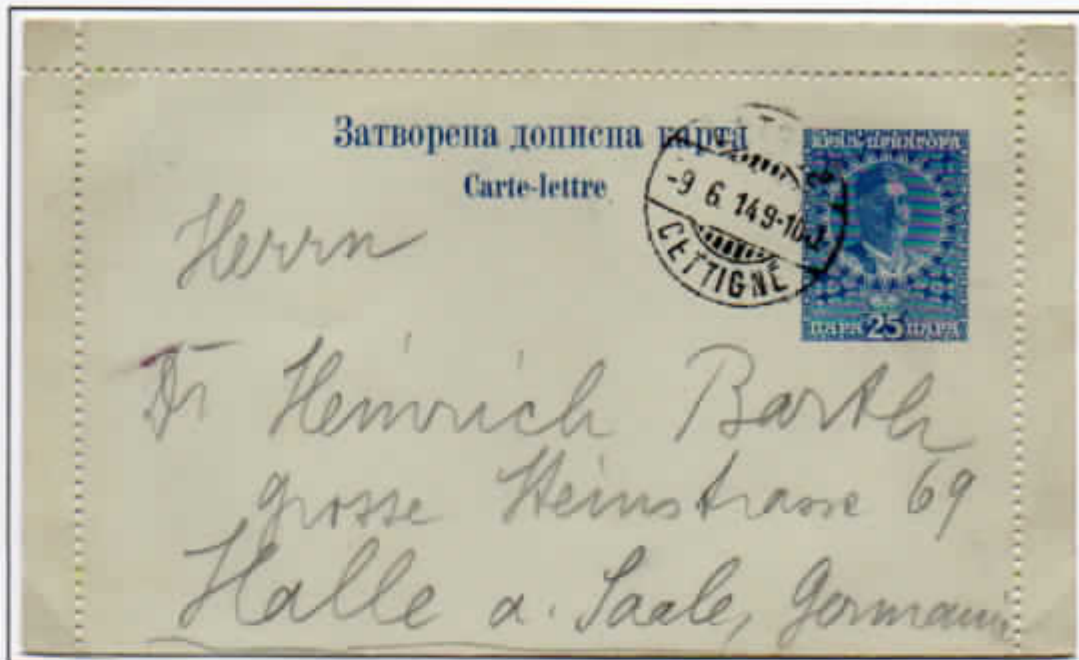 Затворена дописна карта
Carte-lettre
КРАЉ. ЦРНАГОРА
-9 6. 14 9-10
CETTIGNÉ
ПАРА 25 ПАРА
Herrn
Dr Heinrich Barth
grosse Steinstrasse 69
Halle a. Saale, Germania